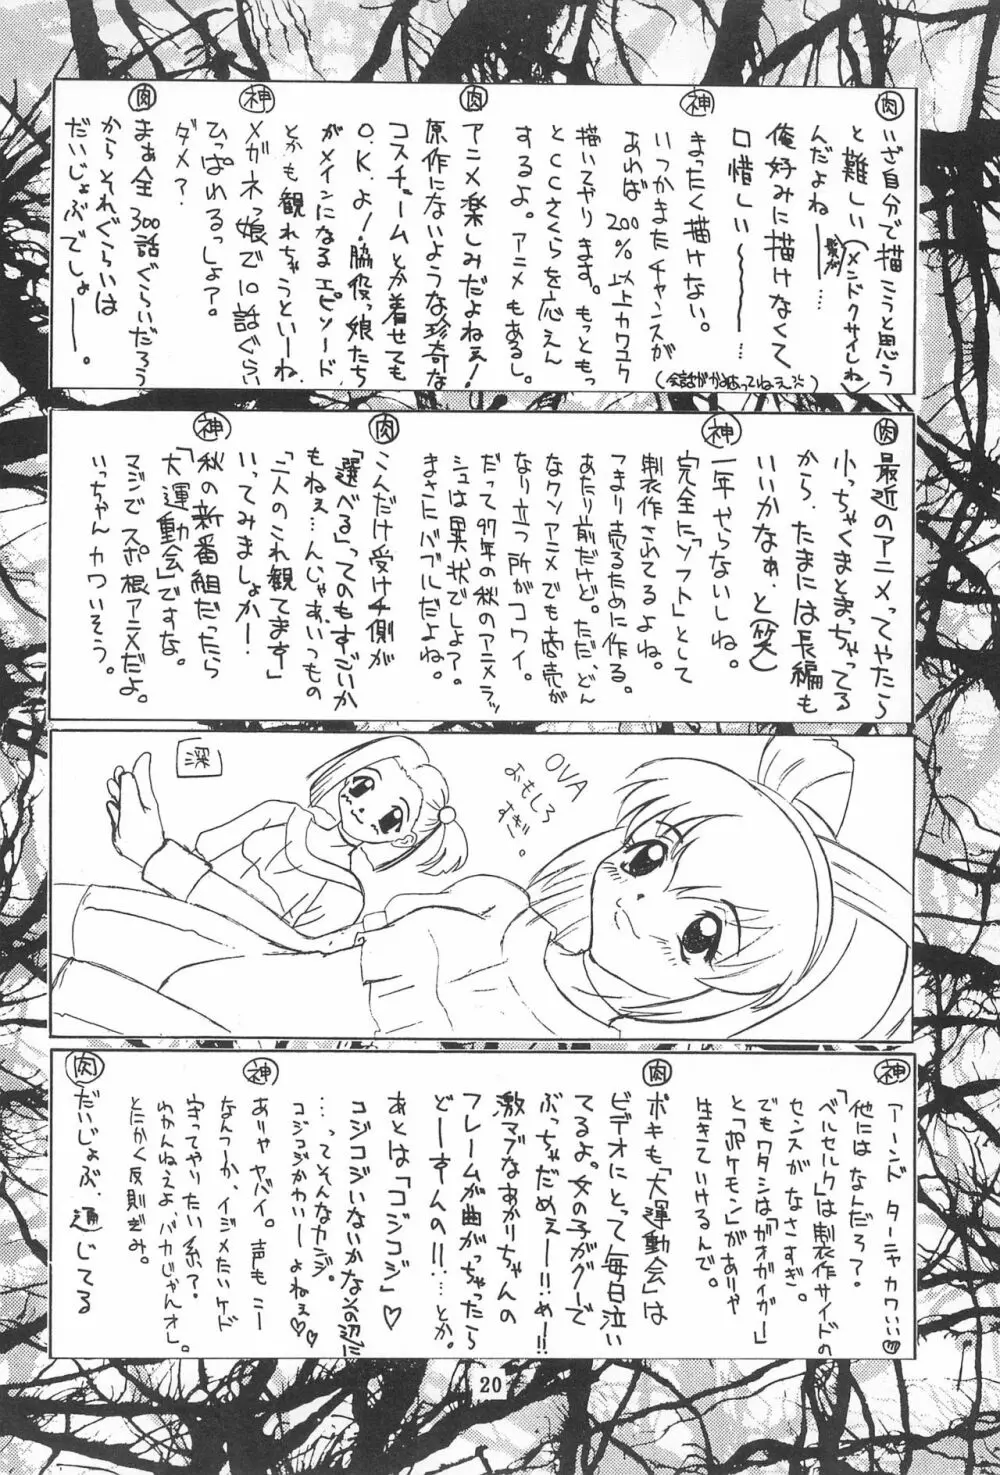 肉
いざ自分で描こうと思う
と難しい(メンドクサイしね)
んだよねーー…
髪が
俺好みに描けなくて
口惜しい〜〜〜〜…
神
まったく描けない。
いつかまたチャンスが
あれば200%以上カワユク
描いてやります。もっともっ
とCCさくらを応えん
するよ。アニメもあるし。
(会話がかみ合っていねえ
肉
アニメ楽しみだよねぇ!
原作にないような珍奇な
コスチュームとか着せても
O.K.よ!脇役っ娘たち
がメインになるエピソード
とかも観れちゃうといーね
神
メガネっ娘で10話ぐらい
ひっぱれるっしょ?
ダメ?
肉
まぁ全300話ぐらいだろう
からそれぐらいは
だいじょぶでしょーー。
肉
最近のアニメってやたら
小っちゃくまとまっちゃってる
から、たまには長編も
いいかなぁ、と(笑)
神
一年やらないしね。
完全に「ソフト」として
制作されてるよね。
つまり売るために作る。
あたり前だけど。ただ、どん
なクソアニメでも商売が
なり立つ所がコワイ。
だって97年の秋のアニメラッ
シュは異状でしょ?
まさにバブルだよね。
肉
こんだけ受け手側が
「選べる」ってのもすごいか
もねぇ…んじゃぁいつもの
「二人のこれ観てます」
いってみましょか!
神
秋の新番組だったら
「大運動会」ですな。
マジでスポ根アニメだよ。
いっちゃんカワいそう。
深
OVA
おもしろ
すぎ。
神
アーンド ターニャ カワいい♡
他にはなんだろ?
「ベルセルク」は制作サイドの
センスがなさすぎ。
でもワタシは「ガオガイガー」
と「ポケモン」がありゃ
生きていけるんで。
肉
ボキも「大運動会」は
ビデオにとって毎日泣い
てるよ。女の子がグーで
ぶっちゃだめぇー!!めー!!
激マブなあかりちゃんの
フレームが曲がっちゃったら
どーすんの!!…とか。
あとは「コジコジ」♡
コジコジいないかなその辺に
…ってそんなカンジ。
コジコジかわいーよねぇ♡♡
神
ありゃヤバイ。声も ニー
なんつーか、イジメたいケド
守ってやりたい系?
わかんねぇよ、バカじゃんオレ。
とにかく反則ぎみ。
肉
だいじょぶ、通じてる
20